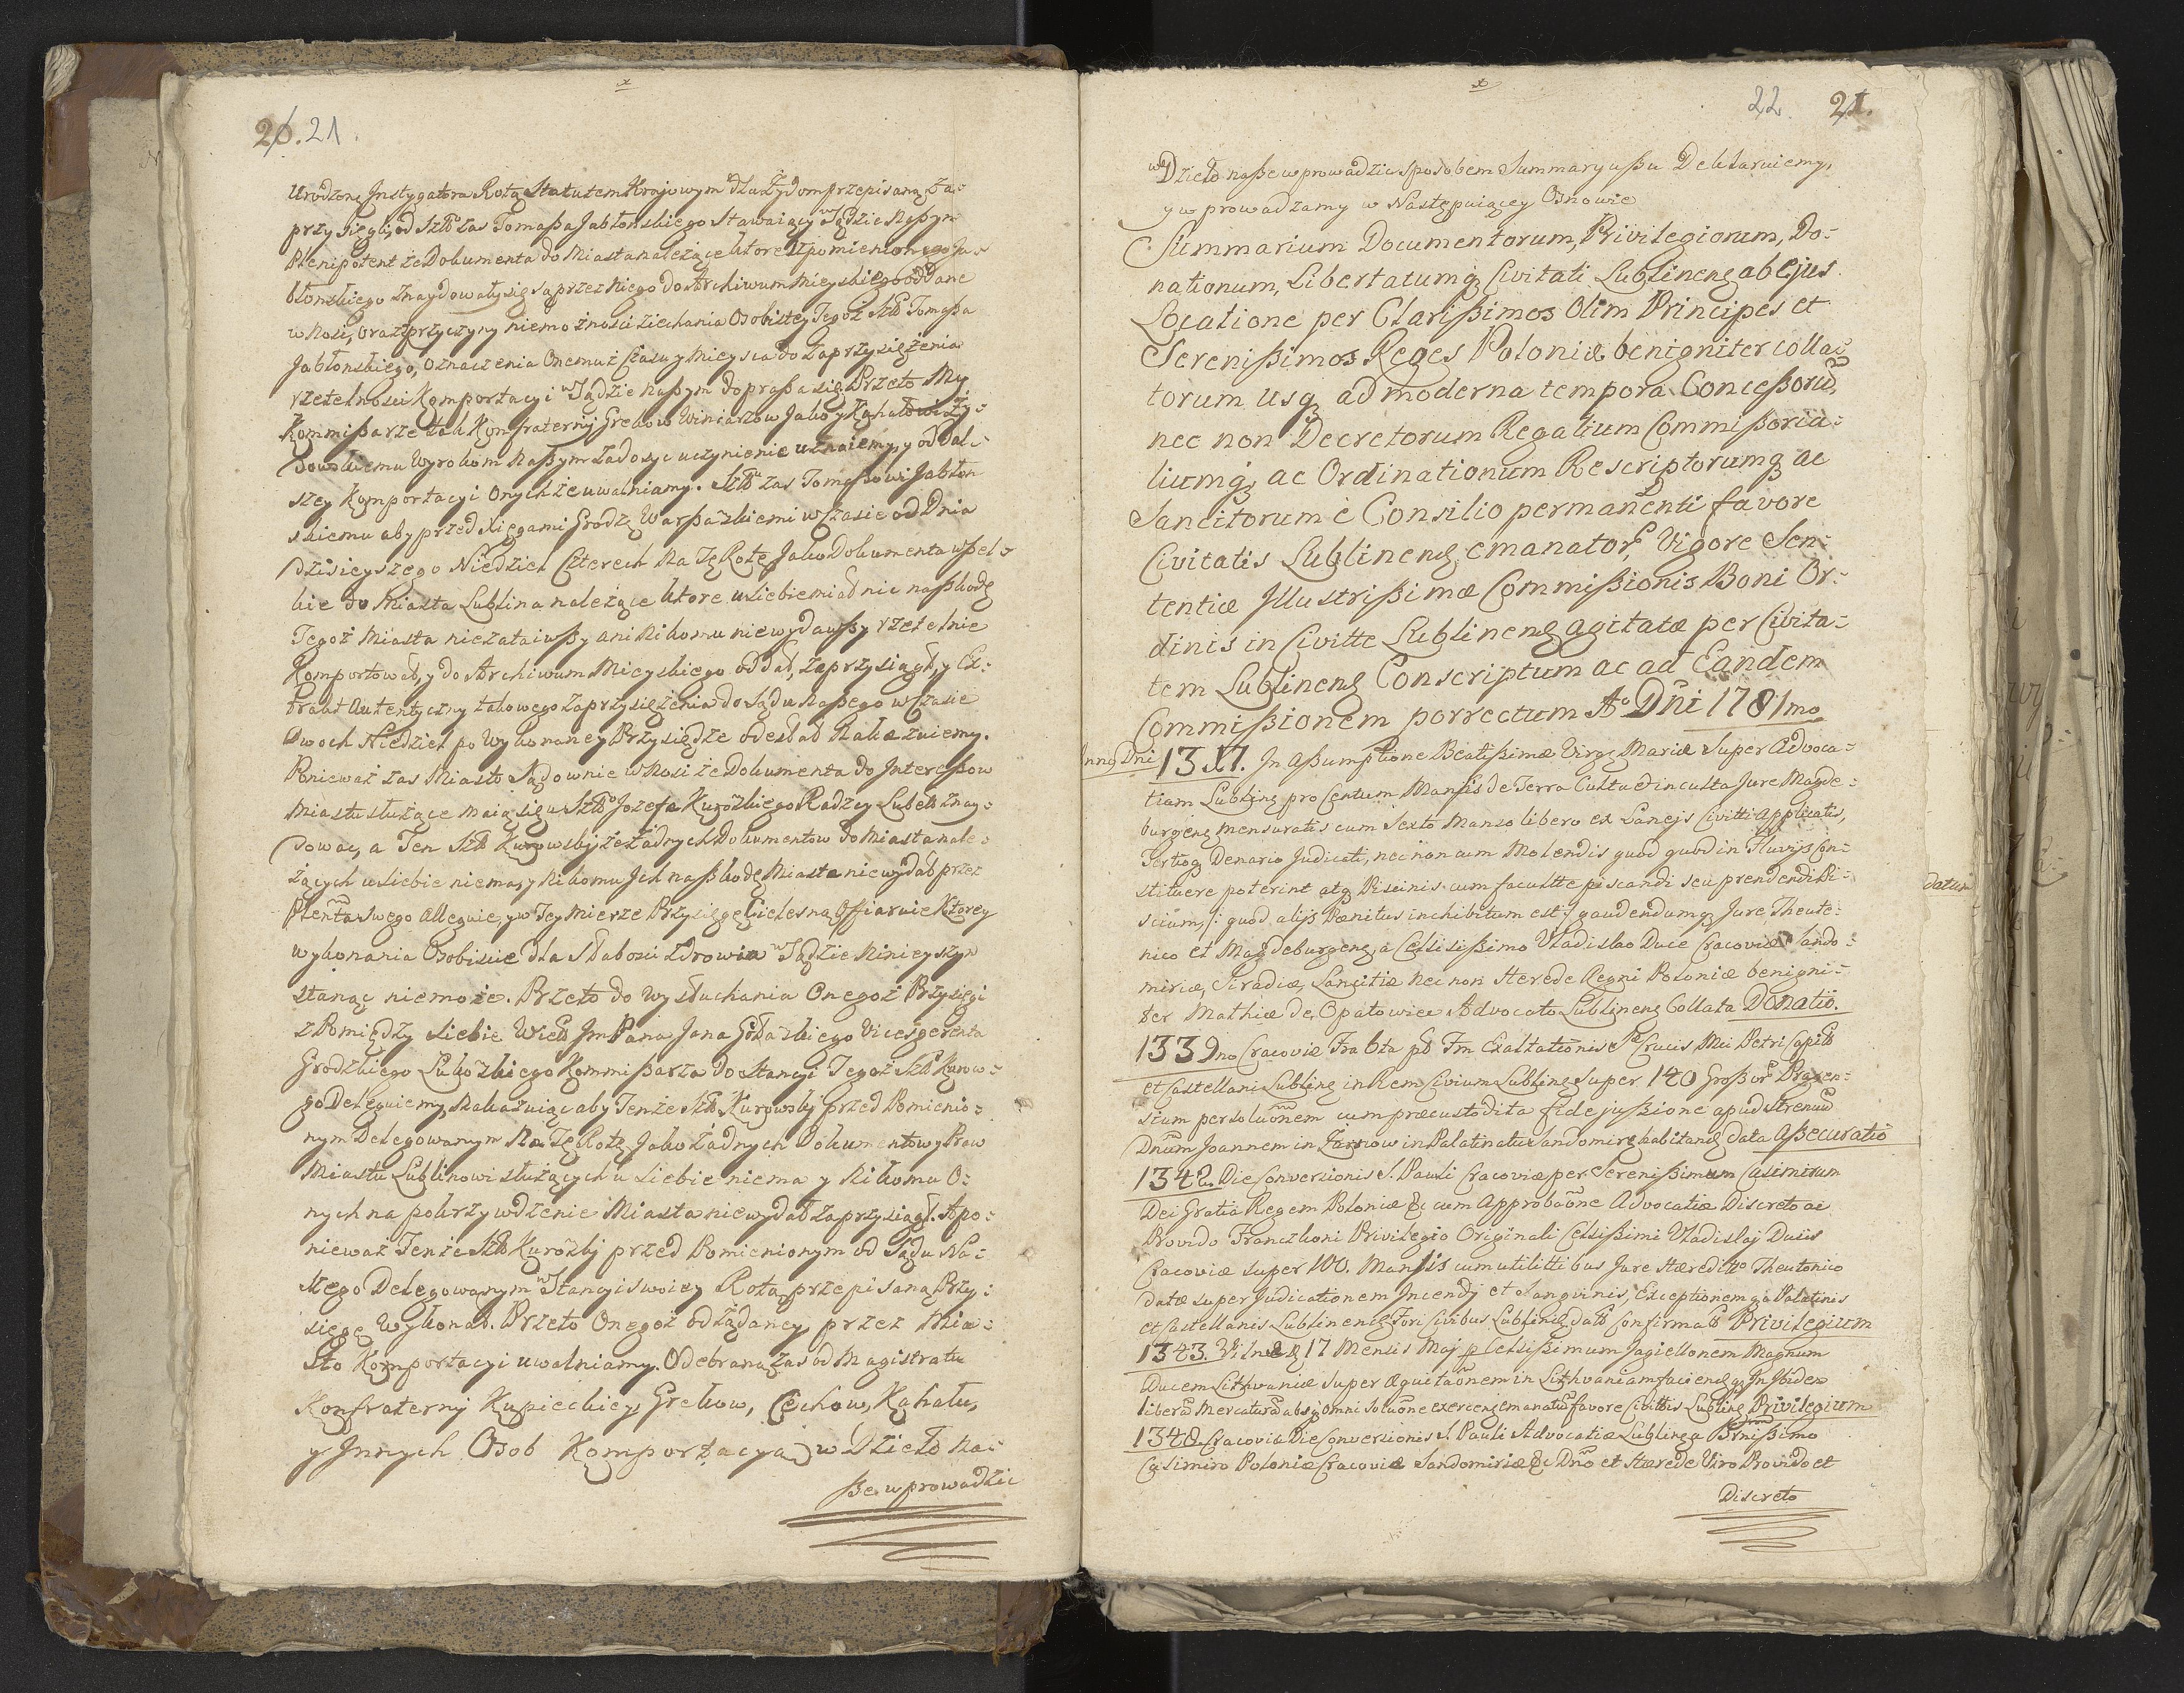 20. 21.
Urodzonę Instygatora Rotą Statutem Krajowym dla Żydom przepisaną Za-
przysięgli, od Szltt zas Tomaßa Jabłonskiego Stawaiący w Sądzie Naßym
Plenipotent że Dokumenta do Miasta należące ktore u pomienionego Ja-
błonskiego znaydowały się są przez niego do Archiwum Mieyskiego oddane
wnosi, oraz przyczyny niemożności ziechania Osobistey Tegoż Szltt Tomaßa
Jabłonskiego, oznaczenia Onemuż Czasu y Mieysca do Zaprzysiężenia
rzetelności Komportacyi w Sądzie naßym dopraßa się. Przeto My
Kommißarze tak Konfraternij Grekow Winiarzow Jako y Kahałowi Ży-
dowskiemu Wyrokom Naßym zadosyc uczynienie uznaiemy, y od dal-
szey Komportacyi Onychże uwalniamy. Szltt zas Tomaßowi Jabłon
skiemu aby przed Xięgami Grodz Warßazkiemi w Czasie od Dnia
dzisieyszego Niedziel Czterech Na Tę Rotę Jako Dokumenta wßel-
kie do Miasta Lublina należące ktore u siebie miał nic na ßkodę
Tegoż Miasta niezataiwßy ani Nikomu niewydawßy rzetelnie
Komportował, y do Archiwum Mieyskiego oddał, zaprzysiągł, y Ex-
trakt Autentyczny takowego zaprzysiężenia do Sądu Naßego w Czasie
Dwoch Niedziel po Wykonaney Przysiędze odesłał Nakazuiemy.
Ponieważ zas Miasto Sądownie wnosi że Dokumenta do Interesßow
Miastu służące maią się u Szltto Jozefa Kurozkiego Radzcy Lubel znay-
dowac, a Ten Szltt Kurowskij że Żadnych Dokumentow do Miasta nale-
żących u siebie niema, y Nikomu Ich na ßkodę Miasta niewydał przez
Plenta Swego Alleguie, y w Tey mierze Przysięgę Cielesną Offiaruie Ktorey
wykonania Osobiscie dla Słabosci Zdrowia w Sądzie Ninieyszym
stanąc niemoże. Przeto do Wysłuchania Onegoż Przysięgi
z Pomiędzy Siebie Wielt Jm Pana Jana Gołazkiego Vicesgerenta
Grodzkiego Lukozkiego Kommißarza do Stancyi Tegoż Szltt Kurow-
go Deleguiemy, Nakazuiąc aby Tenże Szltt Kurowskij przed Pomienio-
nym Delegowanym Na Tę Rotę Jako Żadnych Dokumentow y Praw
Miastu Lublinowi służących u Siebie niema y Nikomu O-
nych na pokrzywdzenie Miasta niewydał zaprzysiągł. A po-
nieważ Tenże Szltt Kurozkij przed Pomienionym od Sądu Na-
szego Delegowanym w Stancyi swoiey Rotą przepisaną Przy-
sięgę Wykonał. Przeto Onegoż od Żądaney przez Mia-
sto Komportacyi uwalniamy. Odebraną zas od Magistratu
Konfraternij Kupieckiey, Grekow, Cechow, Kahału,
y Innych Osob Komportacyą w Dzieło Na-
ße wprowadzic
22. 21.
w Dzieło naße wprowadzic sposobem Summaryußu Deklaruiemy,
y wprowadzamy w Następuiącey Osnowie
Summarium Documentorum, Privilegiorum, Do-
nationum, Libertatumq Civitati Lublinens ab ejus
Locatione per Clarißimos Olim Principes et
Serenißimos Reges Poloniæ benigniter colla-
torum usq ad moderna tempora Conceßorū,
nec non Decretorum Regalium Commißoria-
liumq, ac Ordinationum Rescriptorumq ac
Sancitorum è Consilio permanenti favore
Civitatis Lublinens emanator Vigore Sen-
tentiæ Illustrißimæ Commißionis Boni Or-
dinis in Civitte Lublinens agitatæ per Civita-
tem Lublinens Conscriptum ac ad Eandem
Commißionem porrectum Ao Dni 1781mo
Anno Dni 1317. In Aßumptione Beatißimæ Virg Mariæ Super Advoca-
tiam Lublins pro Centum Mansis de Terra Culta et inculta Jure Magde-
burgens mensuratis cum Sexto Manso libero ex Lanejs Civitti Applicatis,
Tertioq Denario Judicati, nec non cum Molendis quod quod in Fluvijs Con-
stituere poterint atq Piscinis cum facultte piscandi seu prendendi Pi-
scium, /: quod alijs Pœnitus inchibitum est :/ gaudendumq Jure Theute- datum
nico et Magdeburgens, a Celsissißimo Vladislao Duce Cracoviæ Sando-
miriæ, Siradiæ, Lancitiæ nec non Hærede Regni Poloniæ benigni-
ter Mathiæ de Opatowiec Advocato Lublinens Collata Donatio.
1339no Cracoviæ Fra 6ta pt Fm Exaltationis S Crucis Mci Petri Capitt
et Castellani Lublins in Rem Civium Lublins super 140 Großor Pragen-
sium persoluonem cum præcustodita fidejußione apud Strenuū
Dnum Joannem in Tarnow in Palatinatu Sandomirs habitans data Aßecuratio
1342. Die Conversionis S. Pauli Cracoviæ per Serenißimum Casimirum
Dei Gratia Regem Poloniæ &c cum Approbaone Advocatiæ Discreto ac
Provido Franczkoni Privilegio Originali Celsißimi Vladislaj Ducis
Cracoviæ super 100. Mansis cum utilittibus Jure Hæreditto Theutonico
datæ super Judicationem Incendj et Sangvinis, Exceptionemq a Palatinis
et Castellanis Lublinens Fori Civibus Lublins datt Confirmatt Privilegium
1343. Vilnæ 17 Mensis Maj p Celsißimum Jagiellonem Magnum
Ducem Lithvaniæ super Æquitaonem in Lithvaniam faciens, q In Ibidem
liberā Mercaturā absq omni Soluone exercens emanatū favore Civittis Lublins Privilegium
1348. Cracoviæ Die Conversionis S. Pauli Advocatiæ Lublins a Srnißimo
Casimiro Poloniæ Cracoviæ Sandomiriæ &c Dno et Hærede Viro Provido et
Discreto